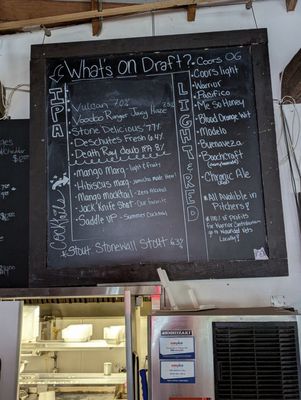 What's On Draft?
IPA
Vulcan 7.0%
Voodoo Ranger Juicy Haze 7.5%
Stone Delicious 7.7%
Deschutes Fresh 6.4%
Death Ray double IPA 8%
Cocktails
Mango Marg - light & fruity
Hibiscus marg
Mango mocktail - Zero Alcohol
Jack Knife Shot - Our favorite
Saddle UP - Summer Cocktail
Stout Stonewall Stout 6.3%
LIGHT & RED
Coors OG
Coors light
Warrior
Pacifico
Me So Honey
Blood Orange Wit
Modelo
Buenaveza
Beachcraft
Chronic Ale
All Available in
Pitchers!
100% of Profits
for Warrior Contribution
go to Wounded Vets
Locally!
HOSHIZAKI